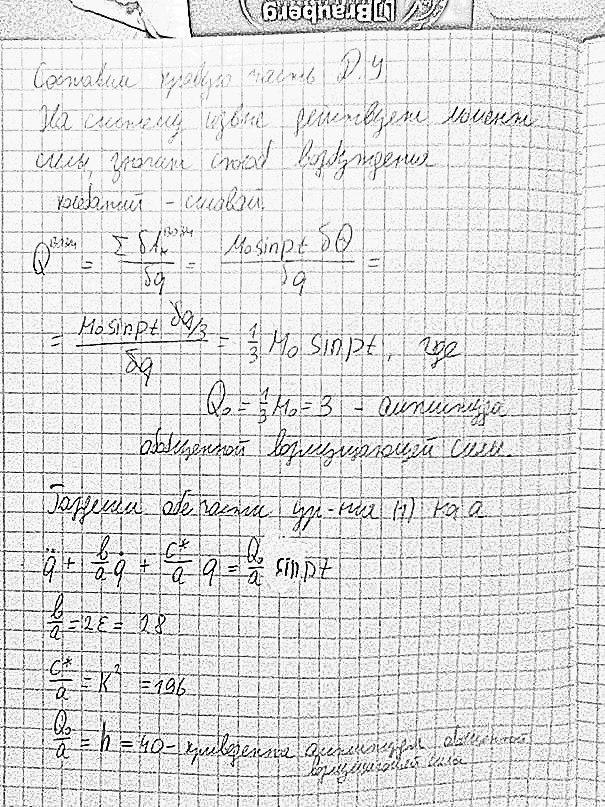 Brauberg
Составим правую часть Д.У
На систему извне действует момент
силы, значит способ возбуждения
колебаний - силовой.
Q^возм = Σ δA_к^возм / δq = M₀ sin pt δθ / δq =
= M₀ sin pt δq/3 / δq = 1/3 M₀ sin pt, где
Q₀ = 1/3 M₀ = 3 - амплитуда
обобщенной возмущающей силы.
Разделим обе части ур-ния (1) на a
q̈ + b/a q̇ + c*/a q = Q₀/a sin pt
b/a = 2ε = 28
c*/a = K² = 196
Q₀/a = h = 40 - приведенная амплитуда обобщенной
возмущающей силы